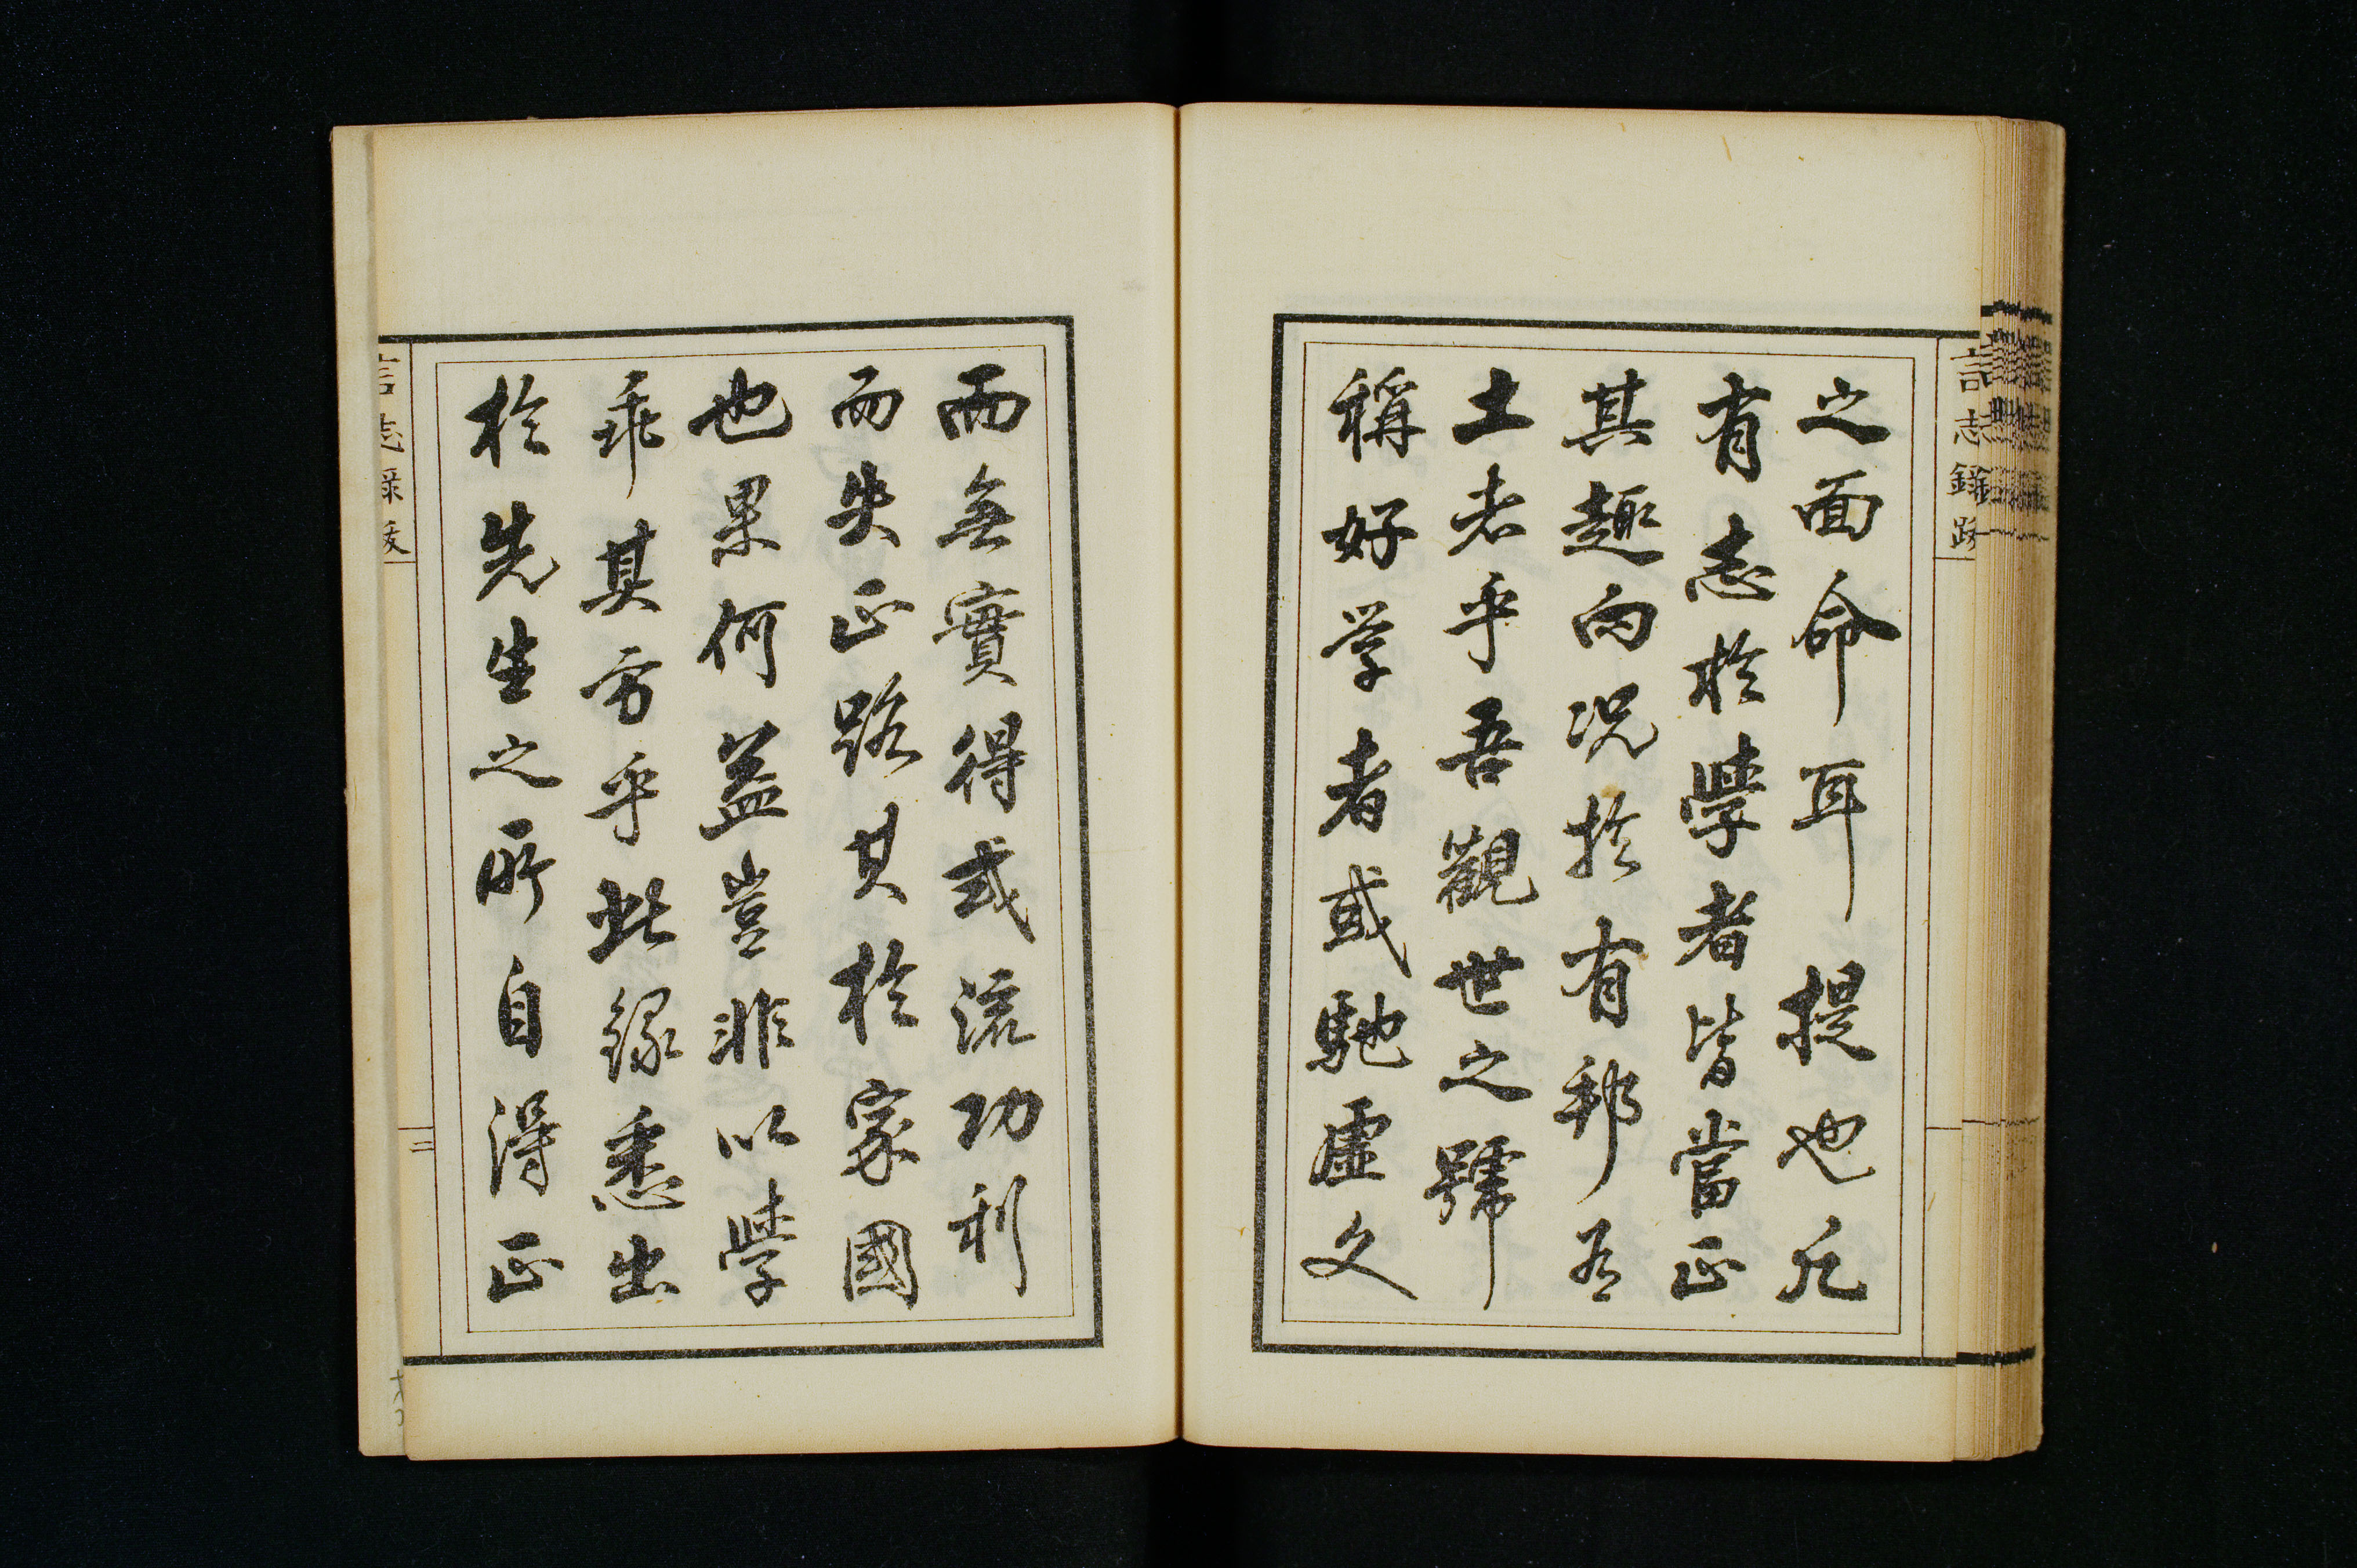 言志錄跋
之面命耳提也凡
有志於學者皆當正
其趣向況於有邦有
土者乎吾觀世之號
稱好学者或馳虛文
而無實得或流功利
而失正路其於家國
也果何益豈非以學
乖其方乎此錄悉出
於先生之所自得正
言志錄跋
二